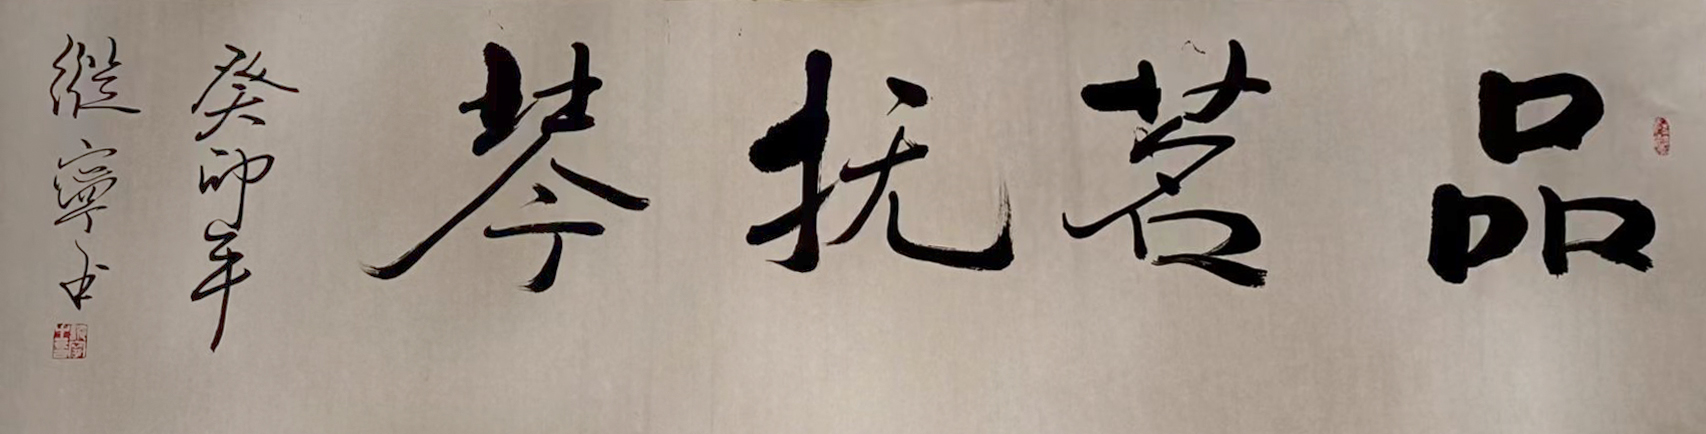 品茗抚琴
癸卯年
纵宁书